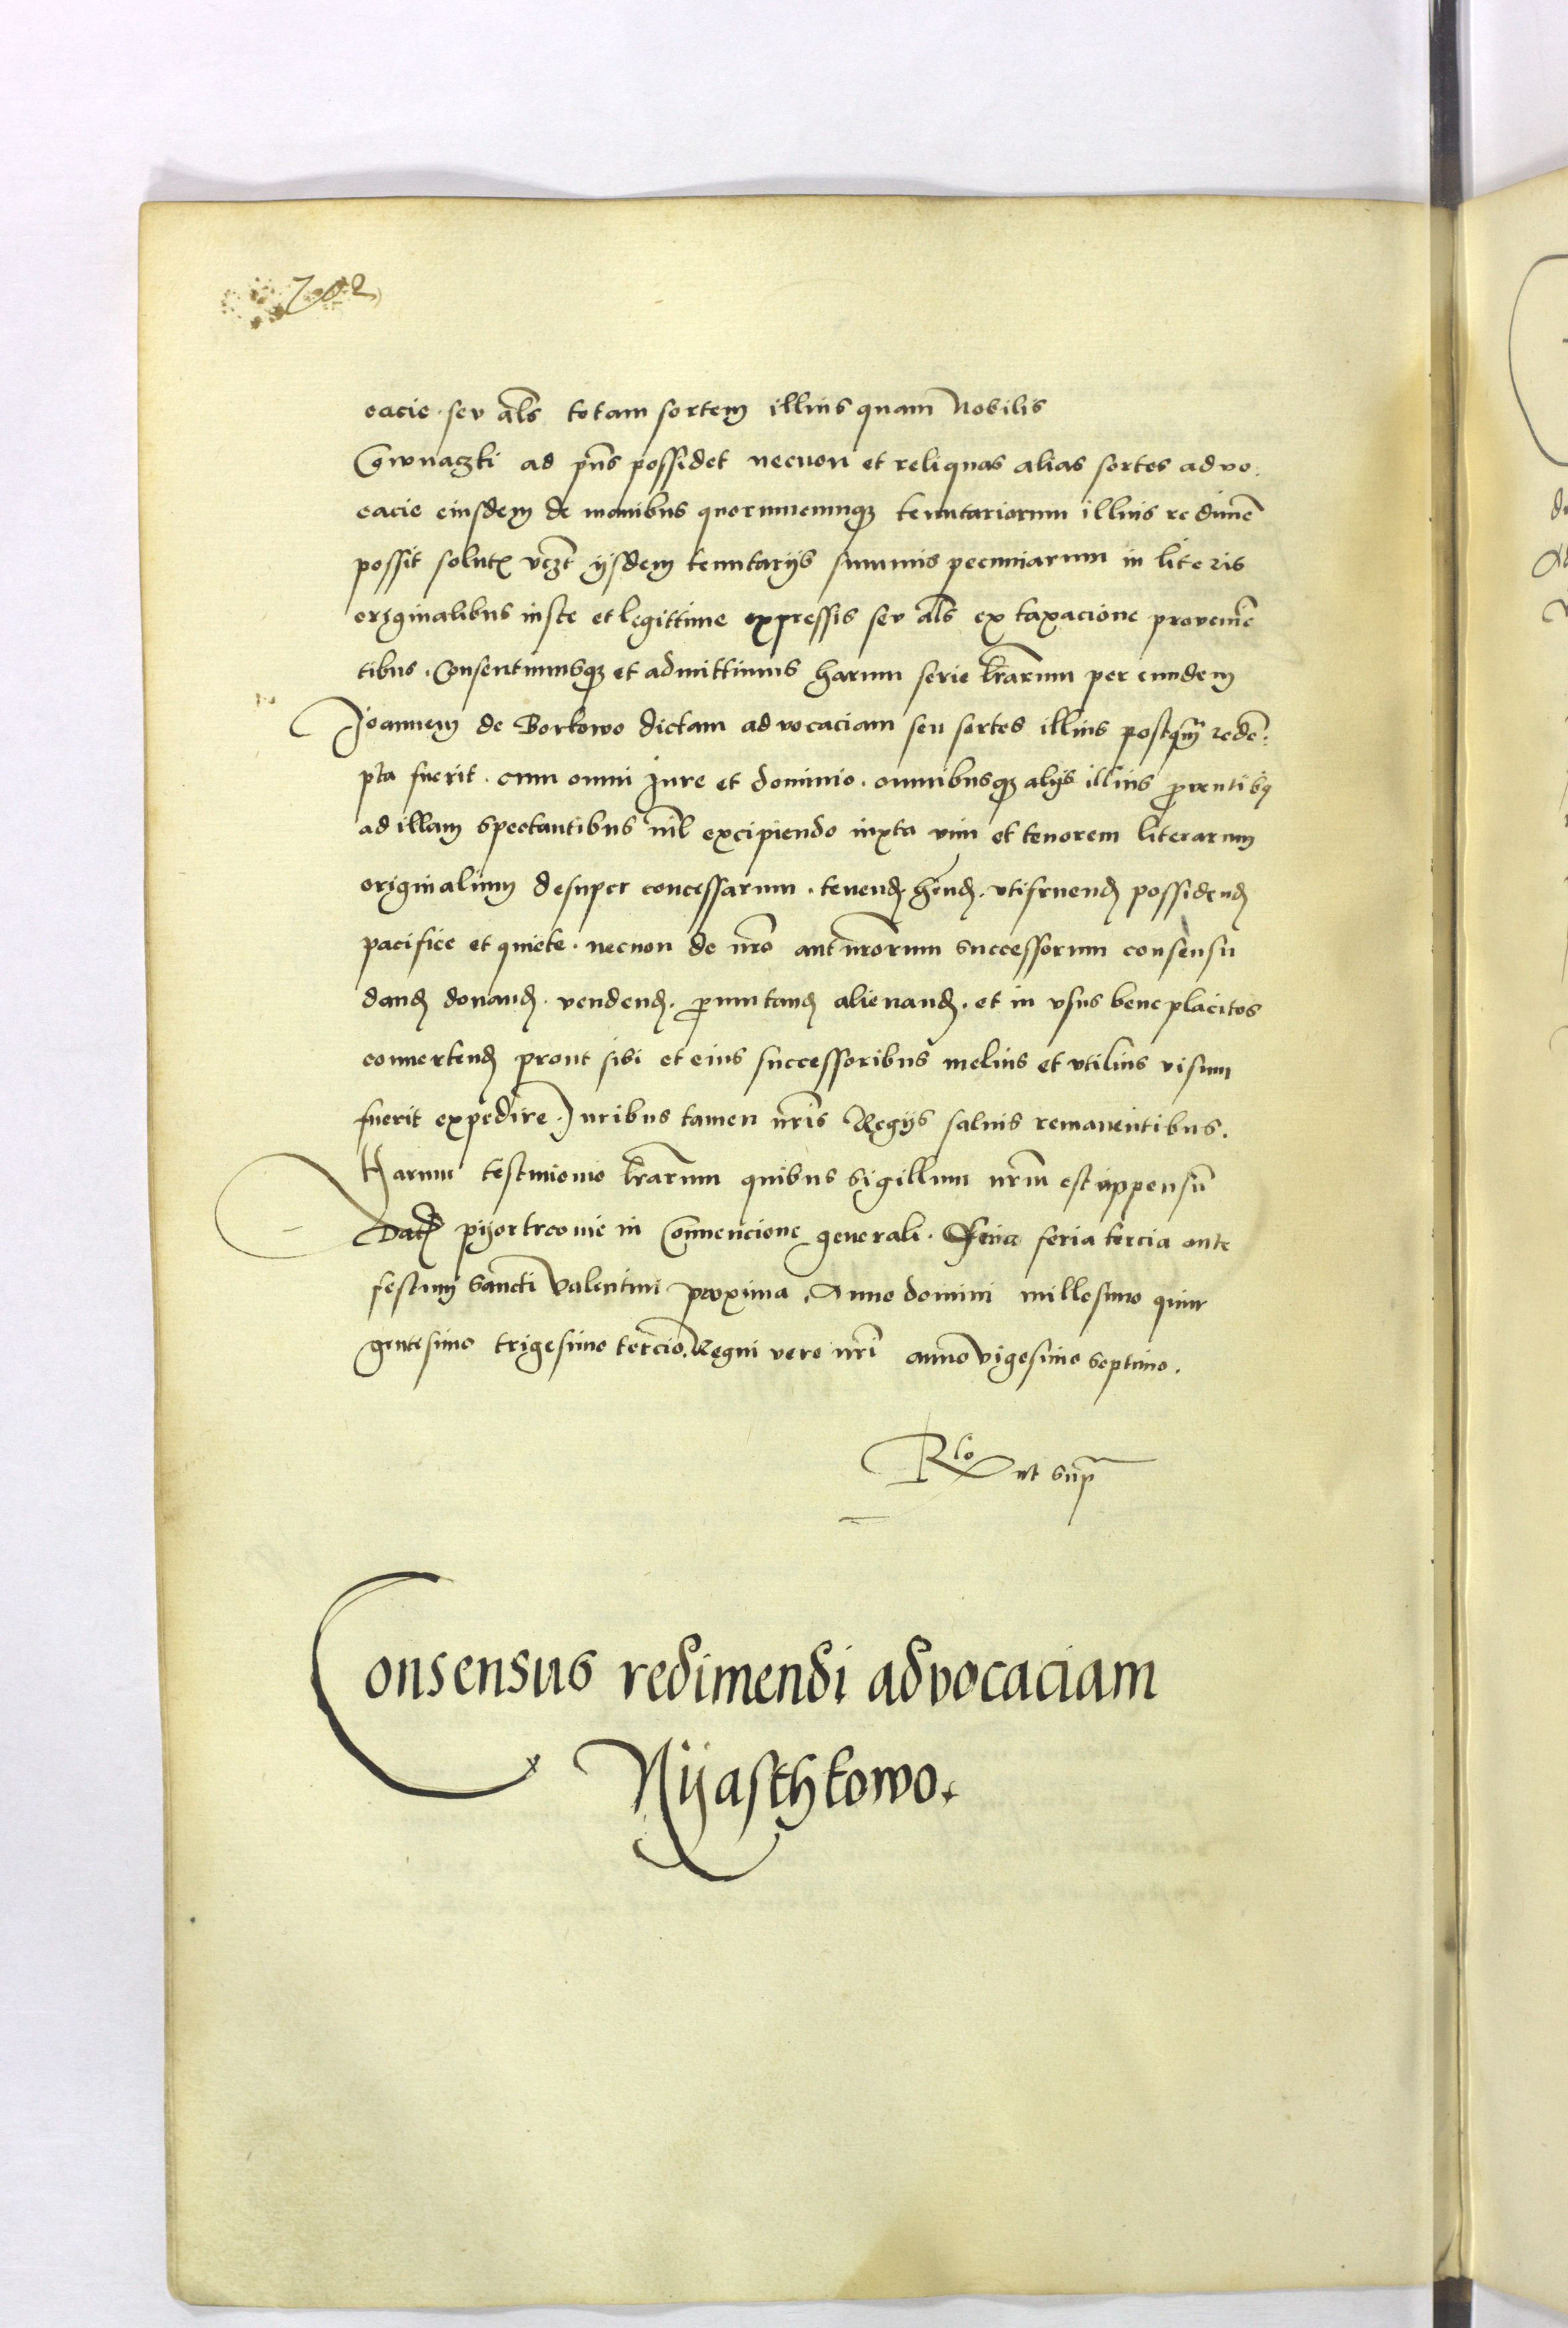 702
cacie seu als totam sortem illius quam Nobilis
Gwnaczki ad pns possidet necnon et reliquas alias sortes advo
cacie eiusdem de manibus quorumcumq tenutariorum illius redime
possit solut vczt ijsdem tenutarijs summis pecuniarum in literis
originalibus iuste et legittime expressis seu als ex taxacione provenien
tibus. Consentimusq et admittimus harum serie lrarum per eundem
Joannem de Borkowo dictam advocaciam seu sortes illius postqm redem
pta fuerit. cum omni Jure et dominio. omnibusq alijs illius proventibq
ad illam spectantibus nil excipiendo iuxta vim et tenorem literarum
originalium desuper concessarum. tenend hend. vtifruend possidend
pacifice et quiete. necnon de nro aut nrorum successorum consensu
dand donand. vendend. permutand alienand. et in vsus beneplacitos
convertend prout sibi et eius successoribus melius et vtilius visum
fuerit expedire. Juribus tamen nris Regijs saluis remanentibus.
Harum testimonio lrarum quibus sigillum nrm est appensum
Dat pijortrcovie in Convencione generali. feria tercia ante
festum Sancti Valentini proxima. Anno domini millesimo quin
gentesimo trigesimo tercio. Regni vero nri anno vigesimo septimo.
Rlo ut sup
Consensus redimendi advocaciam
Nijasthkowo.